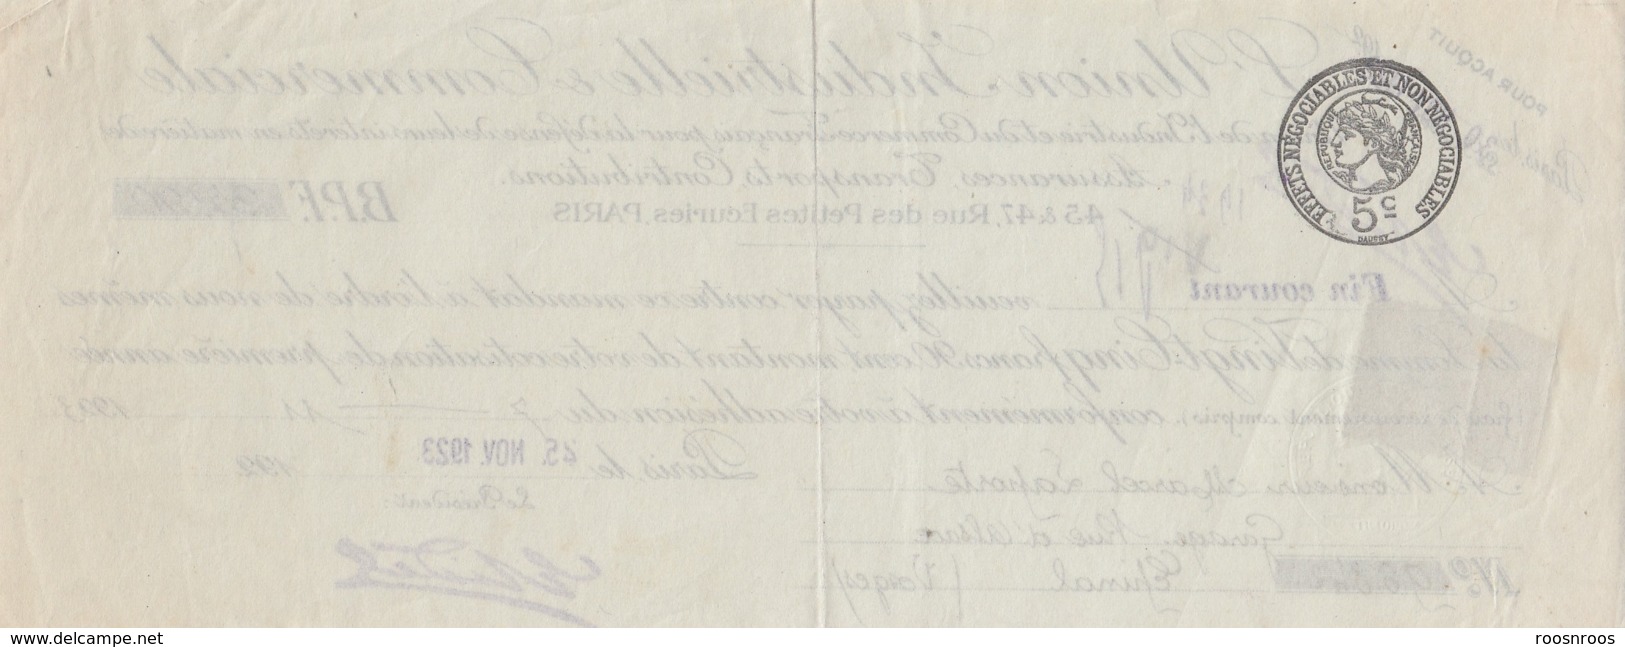 POUR ACQUIT
L'Union Industrielle & Commerciale
de l'Industrie et du Commerce Français pour la Défense de leurs intérêts en matière de
Assurances, Transports, Contributions.
45 & 47, Rue des Petites Ecuries, PARIS
B.P.F.
EFFETS NÉGOCIABLES ET NON NÉGOCIABLES
REPUBLIQUE FRANÇAISE
5c
Fin courant veuillez payer contre ce mandat à l'ordre de nous-mêmes
la Somme de Vingt Cinq francs 90 cent montant de votre cotisation de première année
(frais de recouvrement compris), conformément à votre adhésion du 7 11 1923
Paris le 25. NOV. 1923 192
Le Président
A Monsieur Marcel Laporte
Garage, Rue d'Alsace
Epinal (Vosges)
No
www.delcampe.net
roosnroos